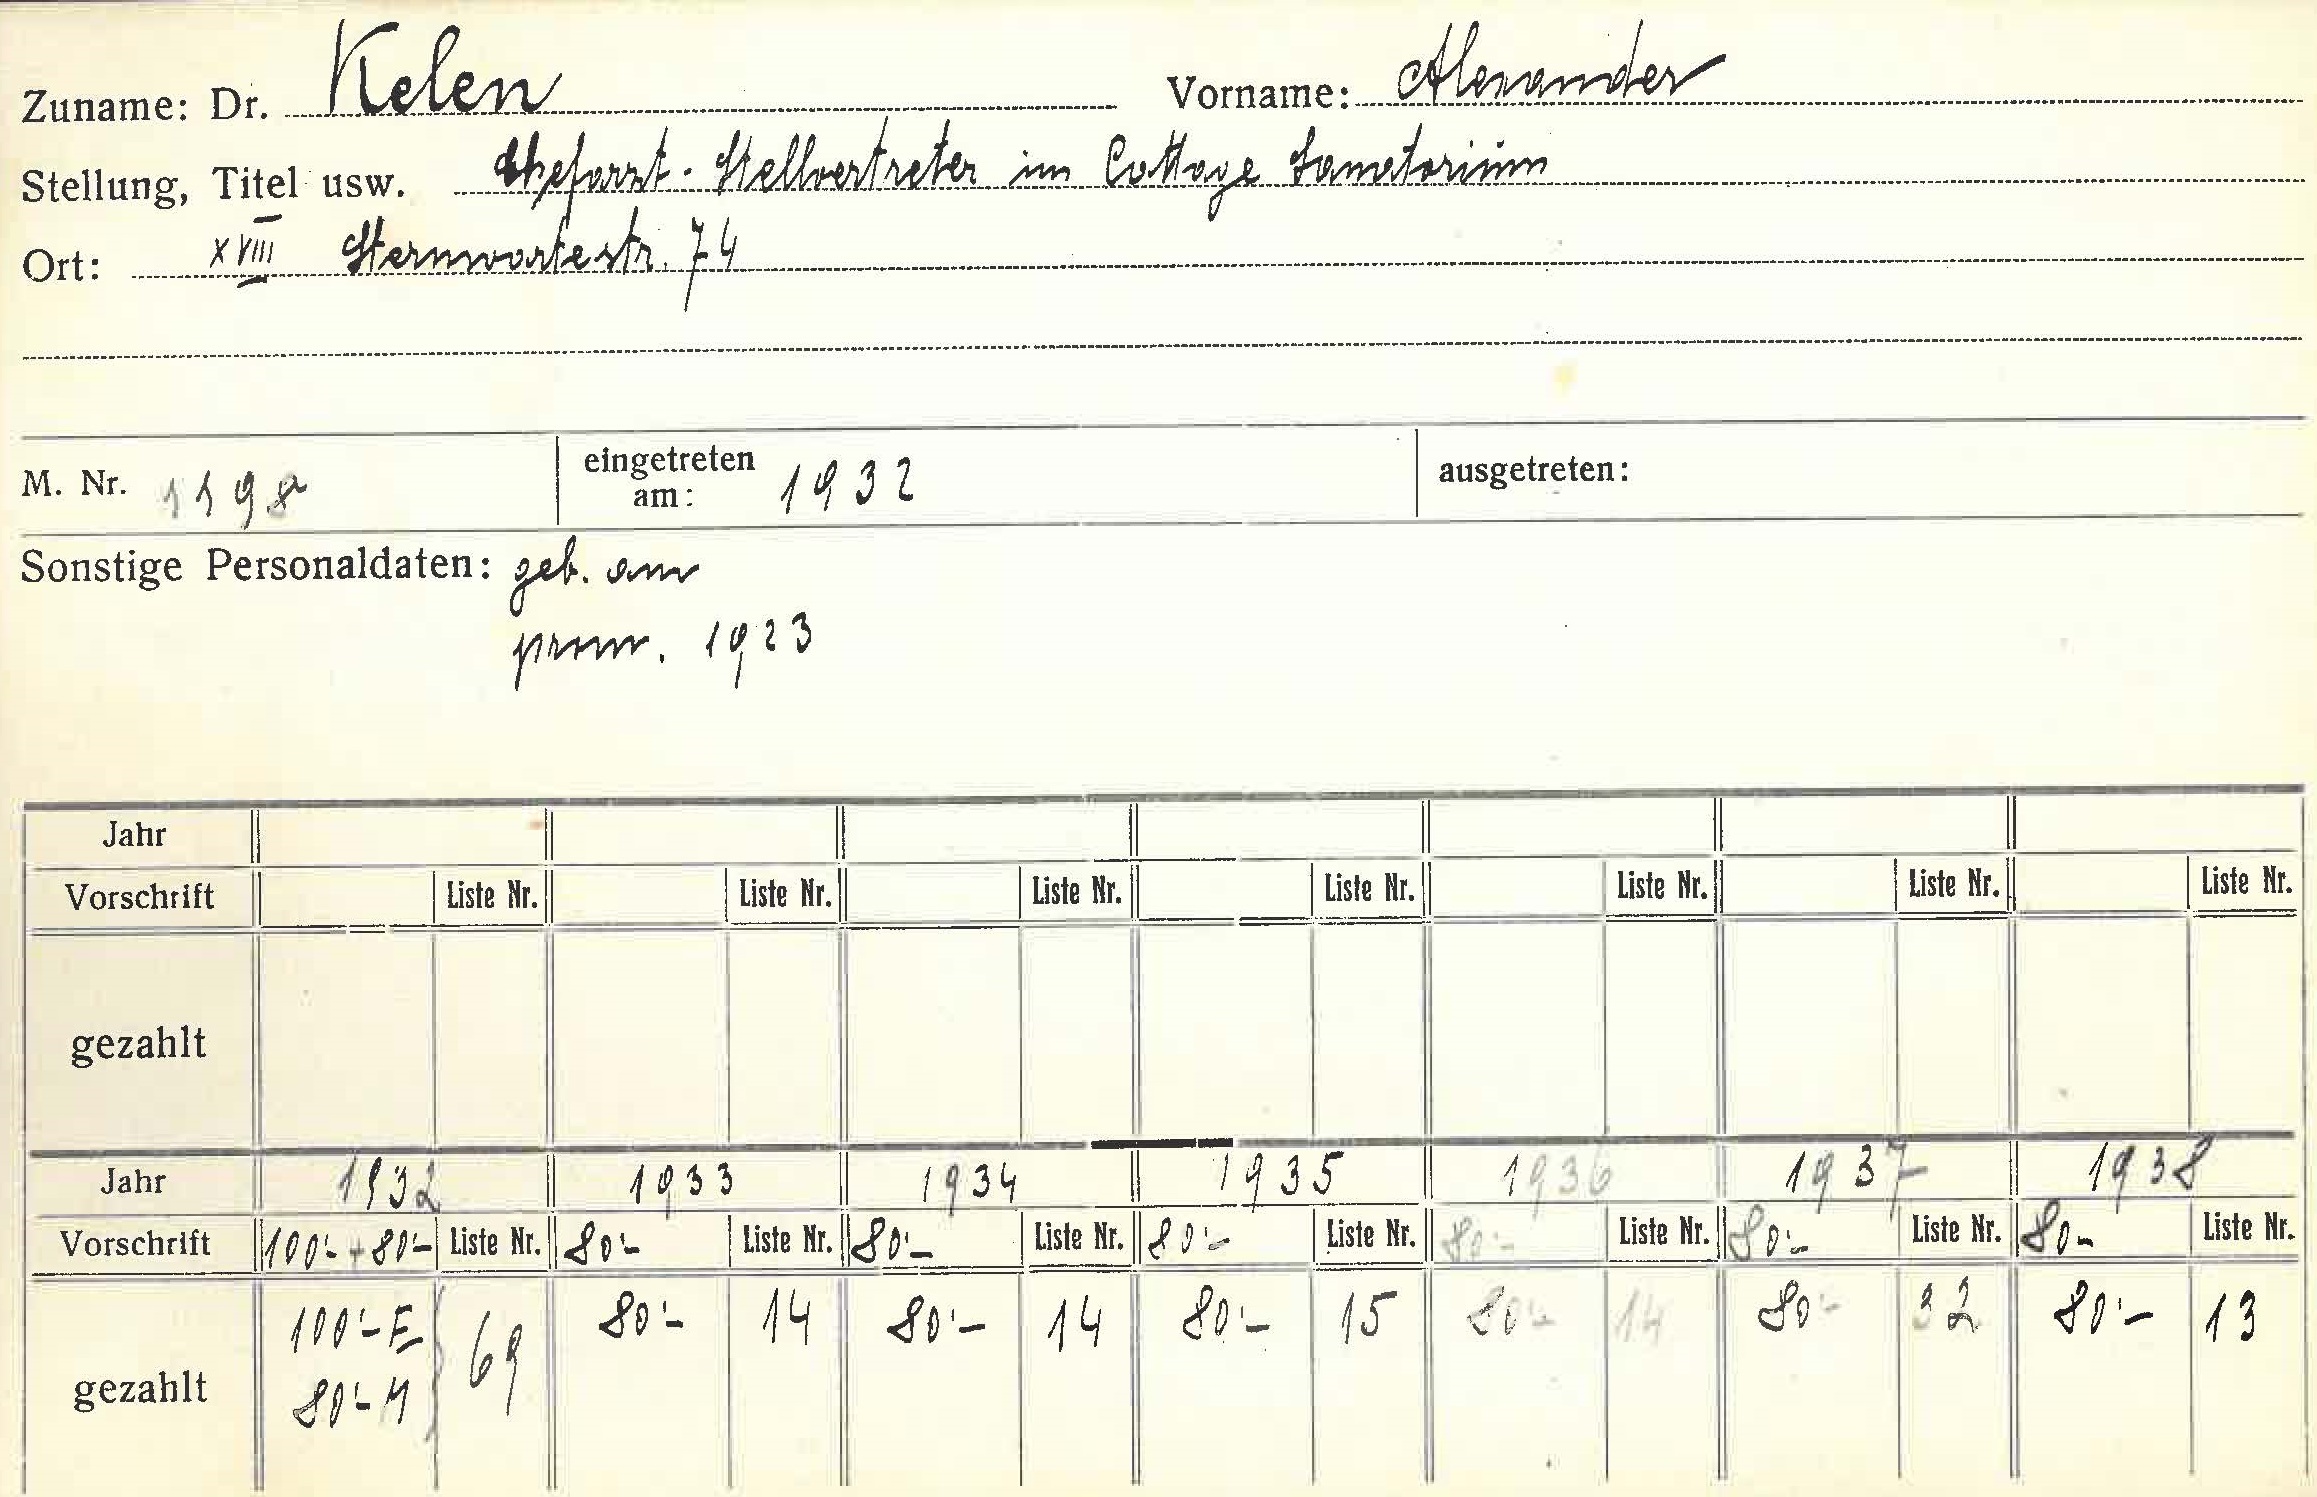 Zuname: Dr. Kelen Vorname: Alexander
Stellung, Titel usw. Chefarzt-Stellvertreter im Cottage Sanatorium
Ort: XVIII Sternwartestr. 74
M. Nr. 1198 eingetreten am: 1932 ausgetreten:
Sonstige Personaldaten: geb. am
prom. 1923
Jahr
Vorschrift Liste Nr. Liste Nr. Liste Nr. Liste Nr. Liste Nr. Liste Nr. Liste Nr.
gezahlt
Jahr 1932 1933 1934 1935 1936 1937 1938
Vorschrift 100'- + 80'- Liste Nr. 80'- Liste Nr. 80'- Liste Nr. 80'- Liste Nr. 80'- Liste Nr. 80'- Liste Nr. 80- Liste Nr.
100'- E 69 80'- 14 80'- 14 80'- 15 80'- 14 80'- 32 80'- 13
gezahlt 80'- M